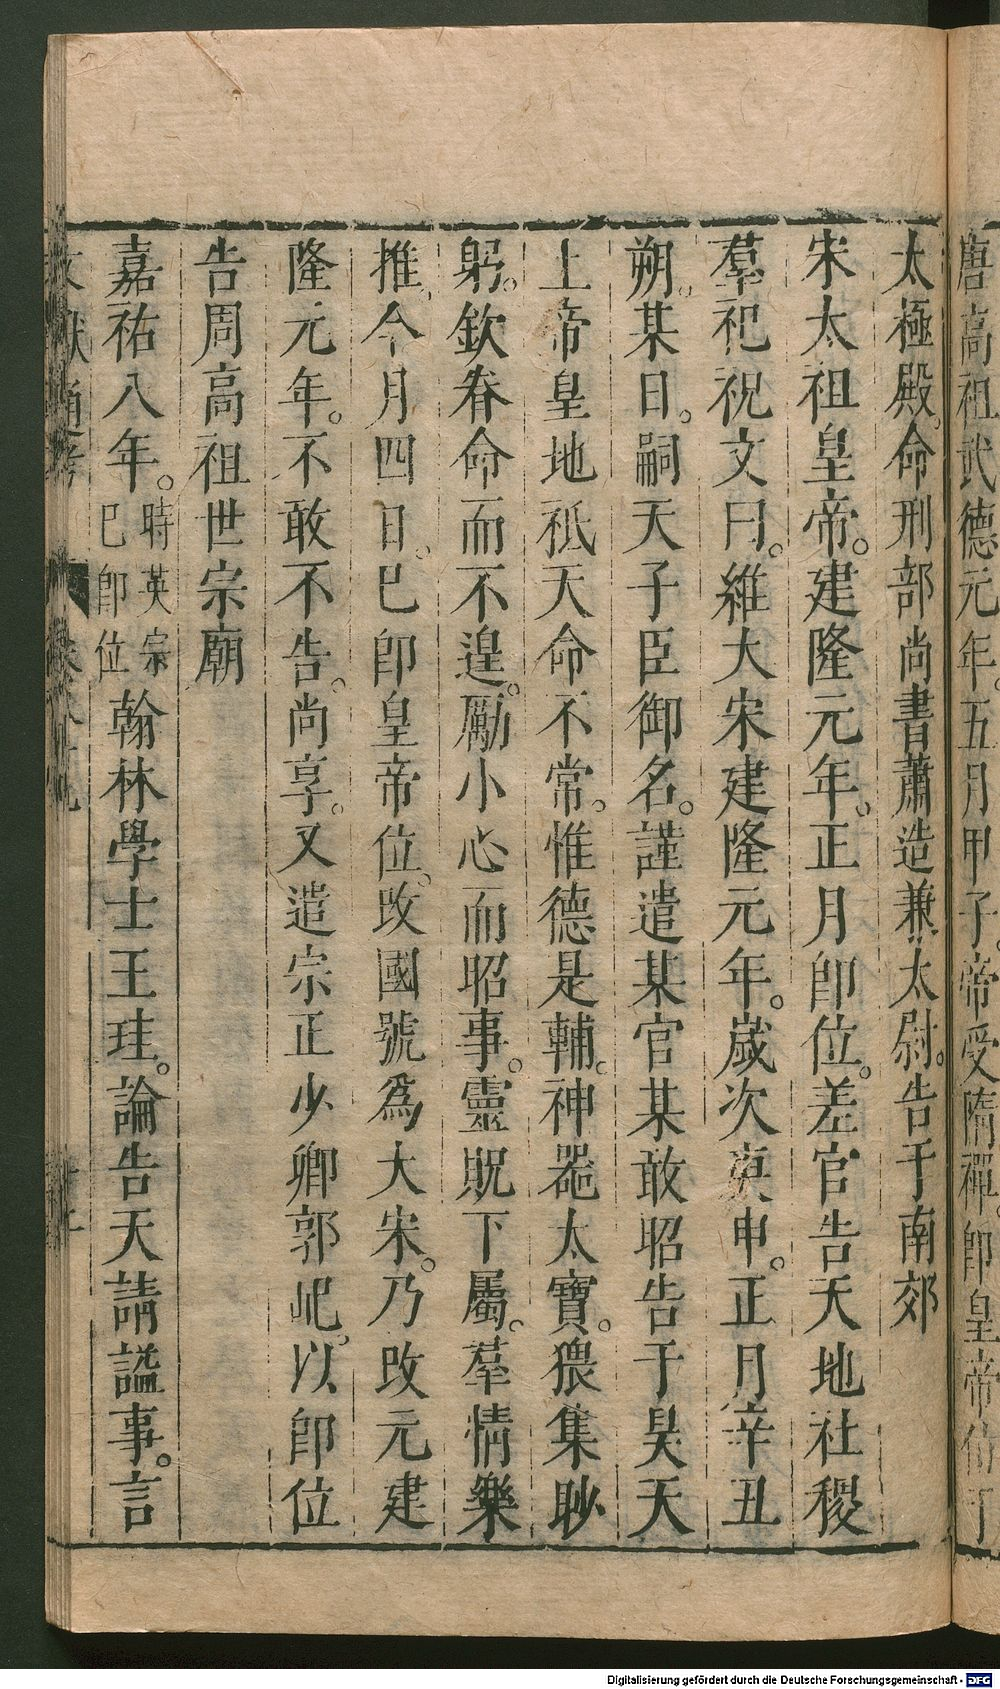 唐高祖武德元年。五月甲子。帝受隋禪。卽皇帝位于
太極殿。命刑部尚書蕭造兼太尉。告于南郊
宋太祖皇帝。建隆元年。正月卽位。差官告天地社稷
羣祀祝文曰。維大宋建隆元年。歲次庚申。正月辛丑
朔。某日。嗣天子臣御名。謹遣某官某敢昭告于昊天
上帝皇地祇天命不常。惟德是輔。神器太寶。猥集眇
躬。欽眷命而不遑。勵小心而昭事。靈貺下屬。羣情樂
推。今月四日。已卽皇帝位。改國號爲大宋。乃改元建
隆元年。不敢不告。尚享。又遣宗正少卿郭玘。以卽位
告周高祖世宗廟
嘉祐八年。時英宗已卽位翰林學士王珪。論告天請謚事。言
文獻通考 卷八十九